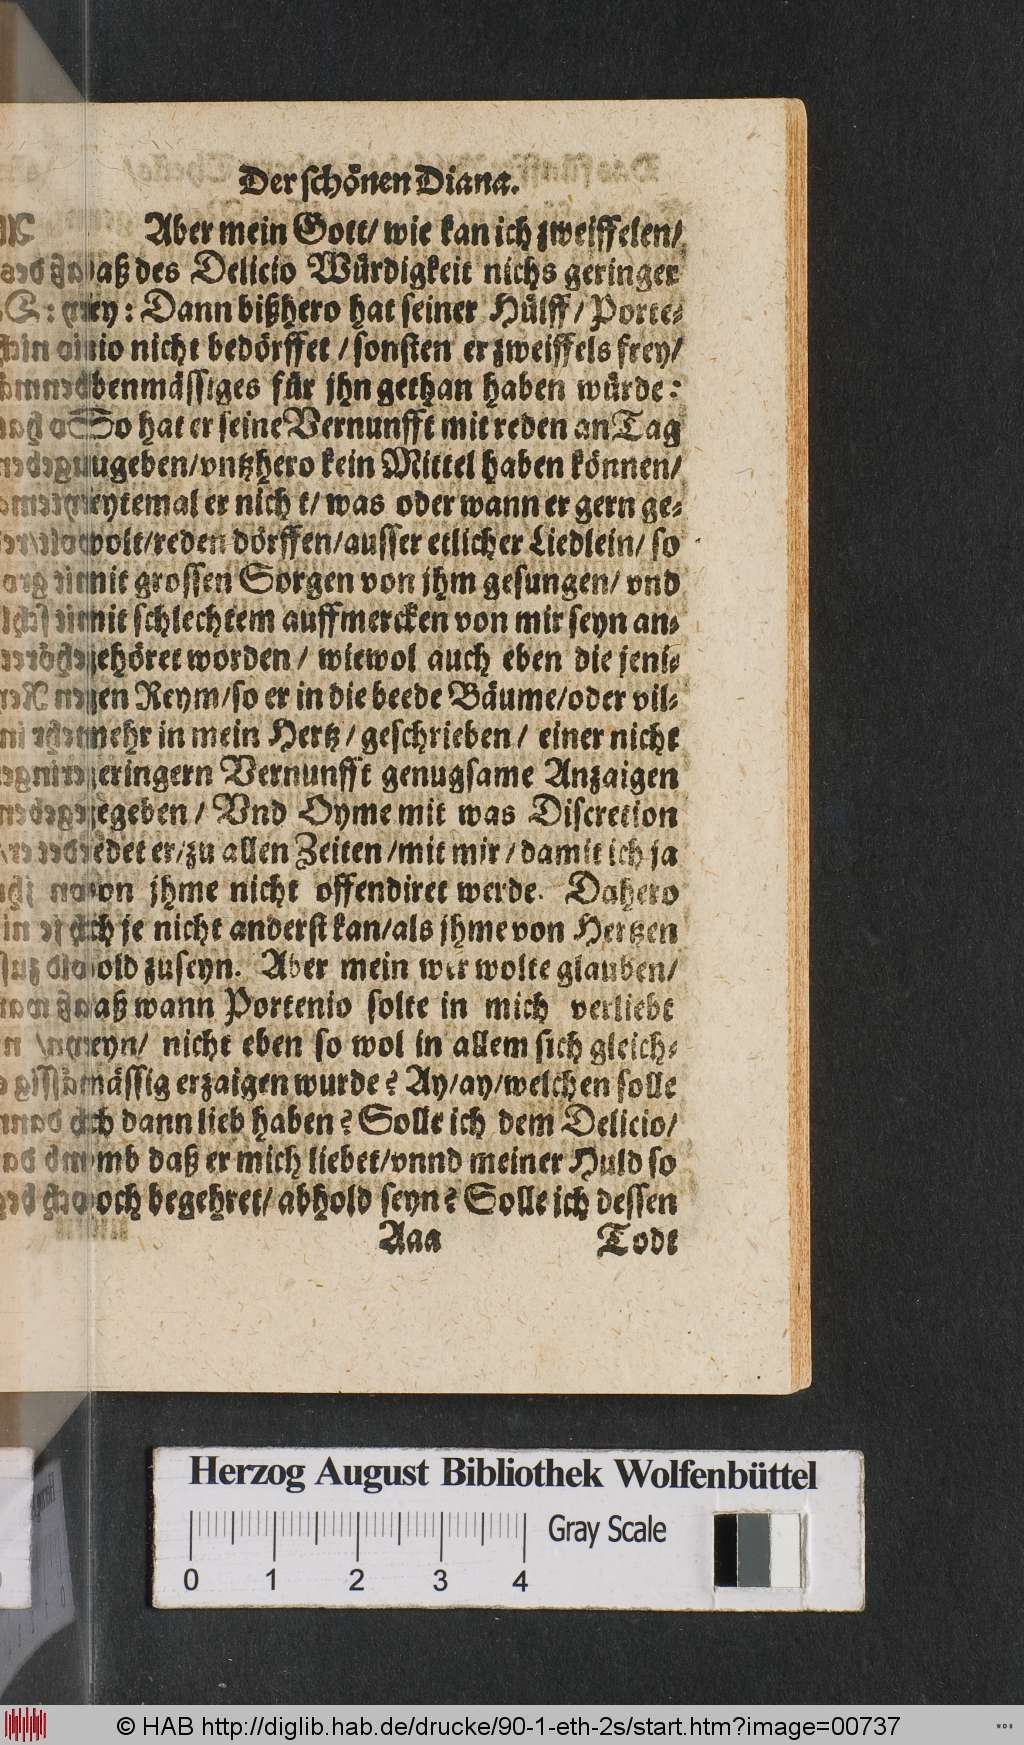 Der schönen Diana.
Aber mein Gott/ wie kan ich zweiffelen/
daß des Delicio Würdigkeit nichs geringer
sey: Dann bißhero hat seiner Hülff/ Porte-
nio nicht bedörffet/ sonsten er zweiffels frey/
ebenmässiges für jhn gethan haben würde:
So hat er seine Vernunfft mit reden an Tag
zugeben/ vntzhero kein Mittel haben können/
seytemal er nich t/ was oder wann er gern ge-
wolt/ reden dörffen/ ausser etlicher Liedlein/ so
mit grossen Sorgen von jhm gesungen/ vnd
mit schlechtem auffmercken von mir seyn an-
gehöret worden/ wiewol auch eben die jeni-
gen Reym/ so er in die beede Bäume/ oder vil-
mehr in mein Hertz/ geschrieben/ einer nicht
geringern Vernunfft genugsame Anzaigen
gegeben/ Vnd Oyme mit was Discretion
redet er/ zu allen Zeiten/ mit mir/ damit ich ja
von jhme nicht offendiret werde. Dahero
ich je nicht anderst kan/ als jhme von Hertzen
hold zuseyn. Aber mein wer wolte glauben/
daß wann Portenio solte in mich verliebt
seyn/ nicht eben so wol in allem sich gleich-
mässig erzaigen wurde? Ay/ ay/ welchen solle
ich dann lieb haben? Solle ich dem Delicio/
vmb daß er mich liebet/ vnnd meiner Huld so
hoch begehret/ abhold seyn? Solle ich dessen
Aaa Todt
Herzog August Bibliothek Wolfenbüttel
Gray Scale
0 1 2 3 4
© HAB http://diglib.hab.de/drucke/90-1-eth-2s/start.htm?image=00737